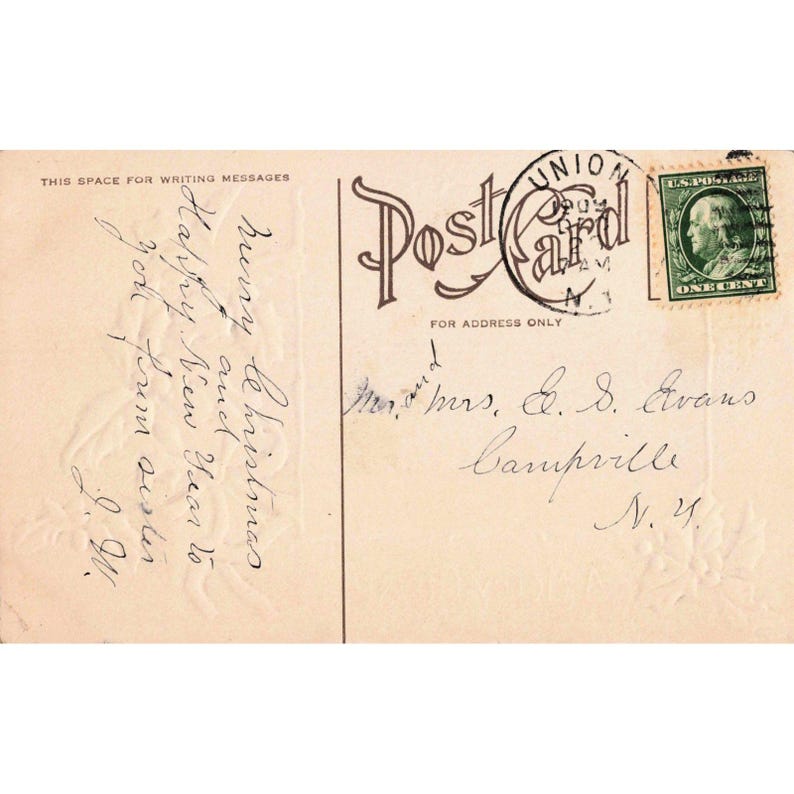 THIS SPACE FOR WRITING MESSAGES
Merry Christmas
and
Happy New Year to
you from sister
J. W.
Post Card
FOR ADDRESS ONLY
UNION
1909
7 AM
N. Y
U.S. POSTAGE
ONE CENT
Mr. and Mrs. E. S. Evans
Campville
N. Y.